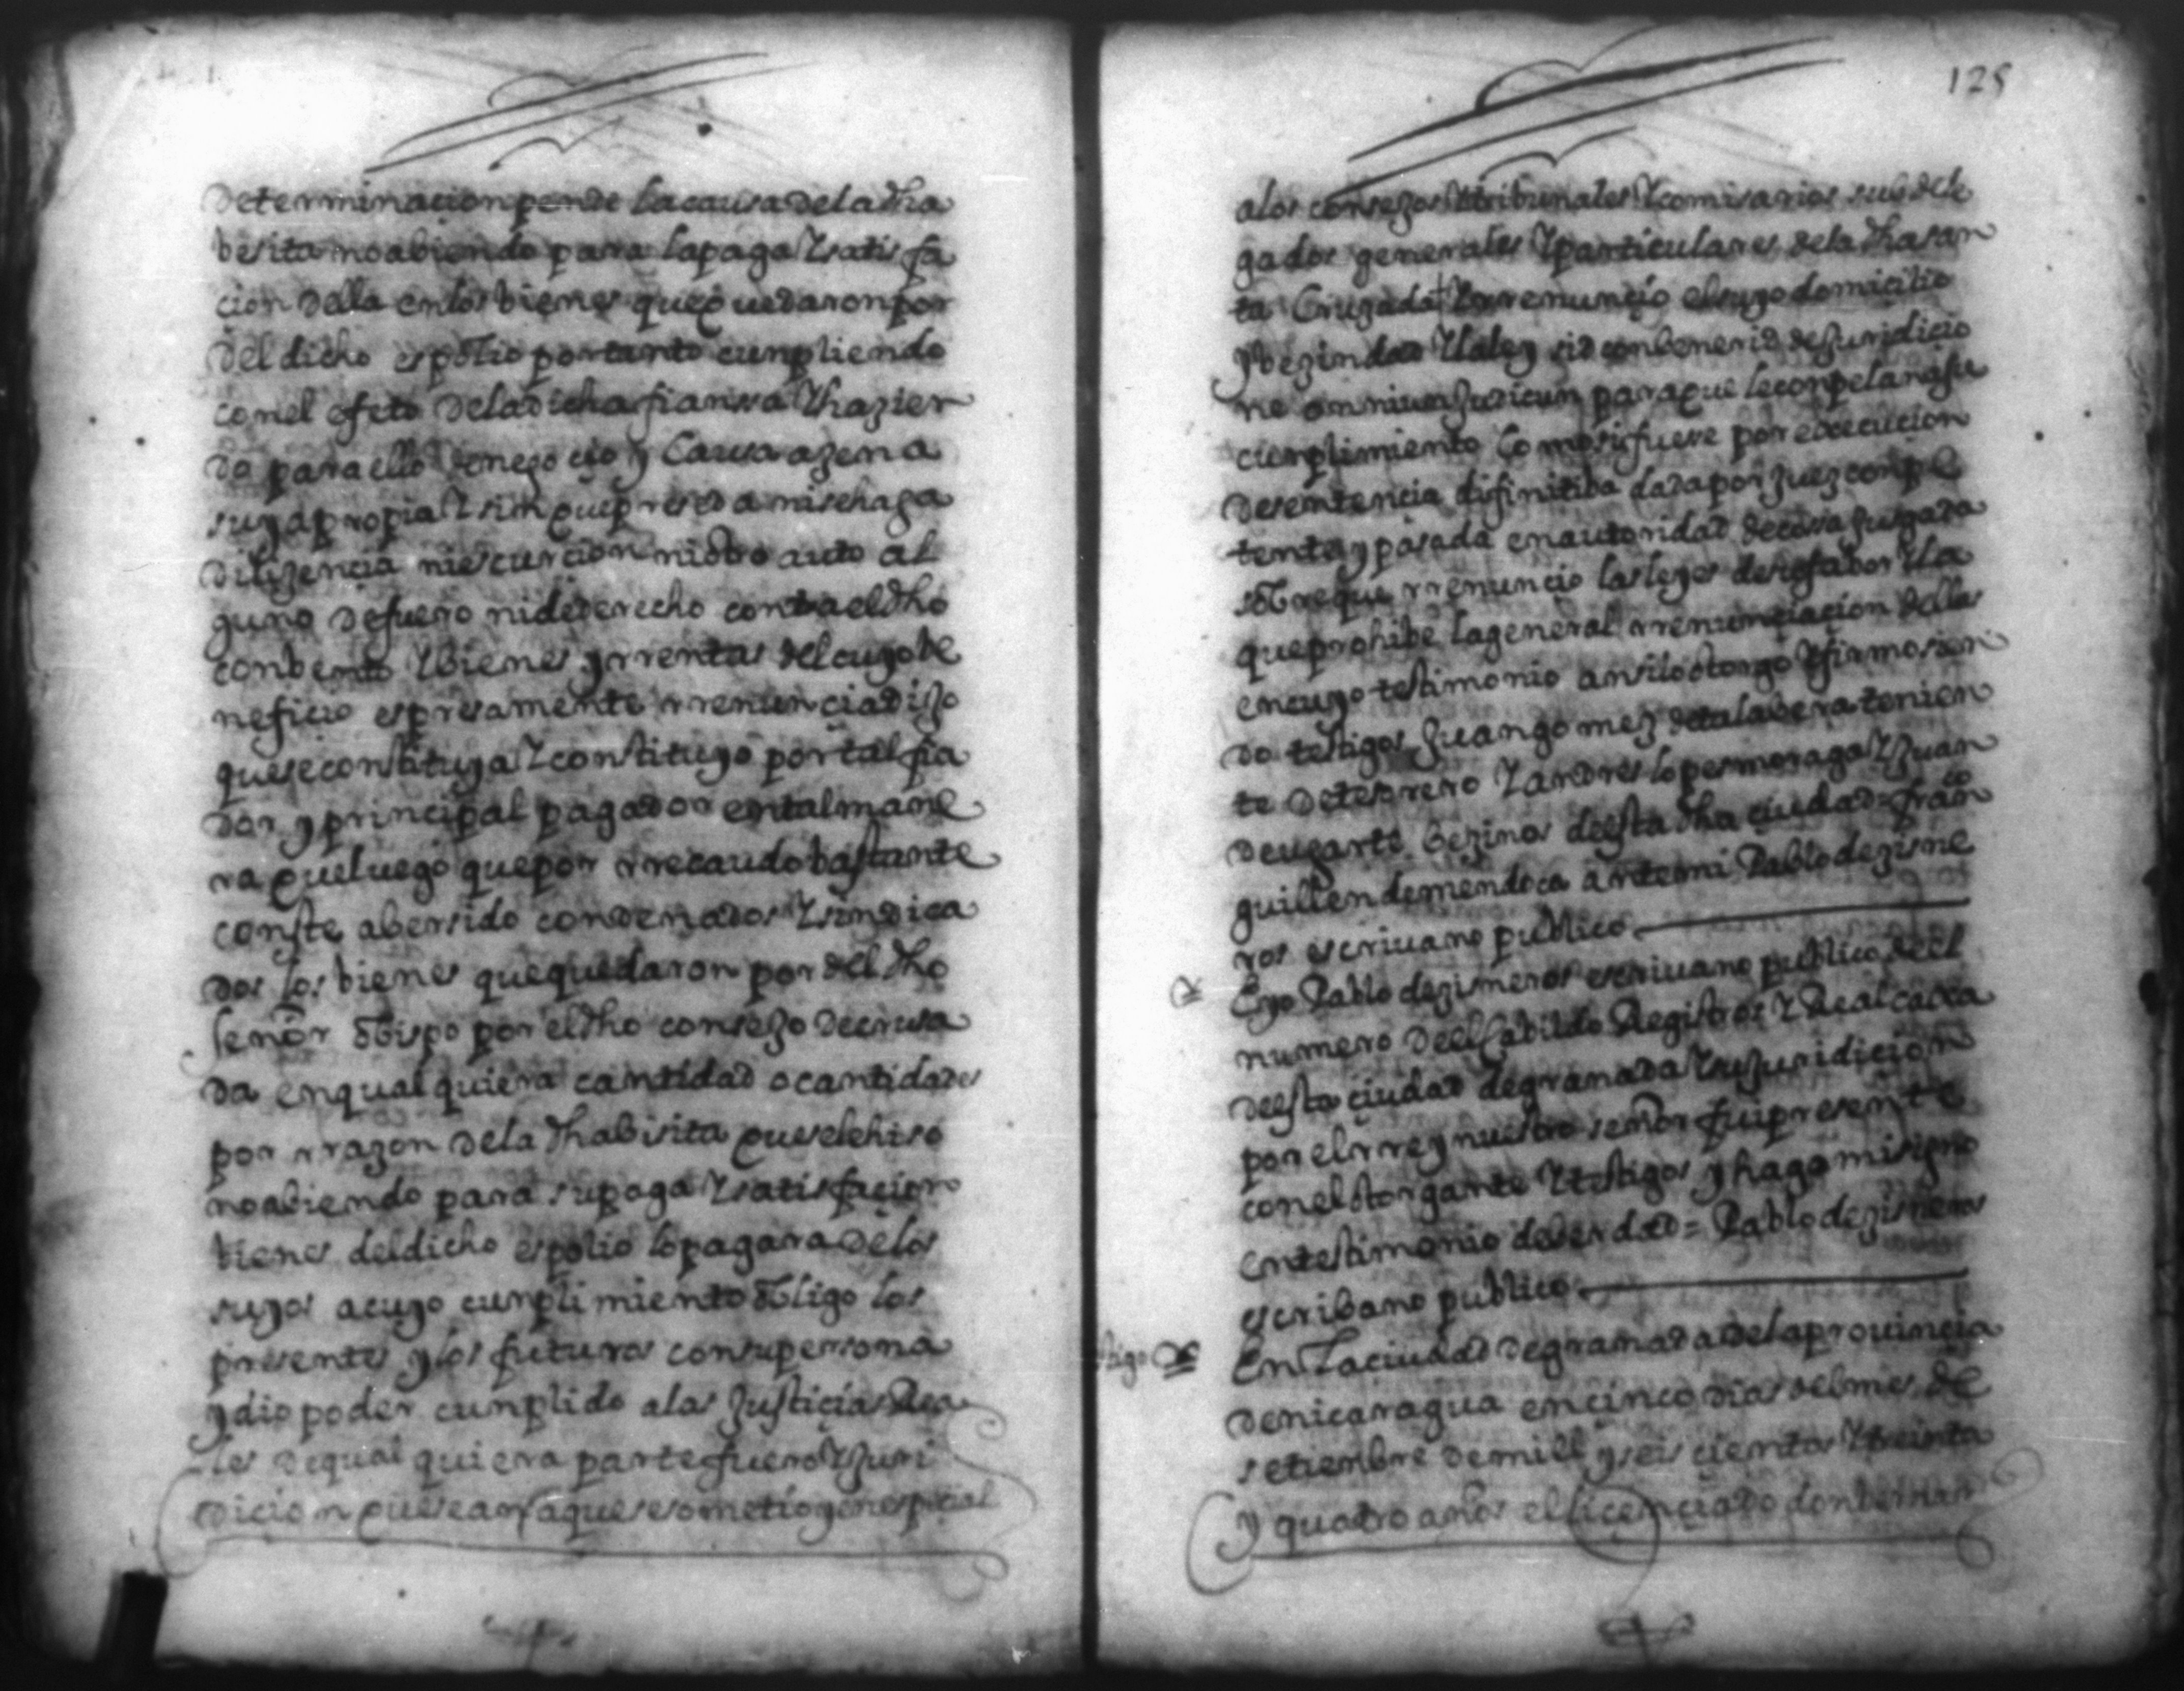 determinacion pende la causa de la dha
besita no abiendo para la paga y satisfa
cion della en los bienes que quedaron por
del dicho espolio por tanto cunpliendo
con el efeto de la dicha fiansa y hazien
do para ello de negocio y causa agena
suya propia y sin que preseda ni se haga
diligencia ni escurcion ni otro auto al
guno de fuero ni de derecho contra el dho
conbento y bienes y rrentas del cuyo be
neficio espresamente rrenuncia dijo
que se constituya y constituyo por tal fia
dor y principal pagador en tal mane
ra que luego que por rrecaudo bastante
conste aber sido condenados y sindica
dos los bienes que quedaron por del dho
señor obispo por el dho consejo de crusa
da en qual quiera cantidad o cantidades
por rrazon de la dha bisita que se le hiso
no abiendo para su paga y satisfacion
bienes del dicho espolio lo pagara de los
suyos a cuyo cunplimiento obligo los
presentes y los futuros con su persona
y dio poder cunplido a las justicias Rea
les de qual quiera parte fuero y juri
dicion que sean a que se sometio y en espicial
125
a los consejos tribunales y comisarios subdele
gados generales y particulares de la dha san
ta Cruzada rrenuncio el suyo domicilio
y bezindad y la ley sid conbenerid de juridicio
ne onniun judicun para que le conpelan a su
cunplimiento como si fuere por execucion
de sentencia difinitiba dada por juez conpe
tente y pasada en autoridad de cossa jusgada
sobre que rrenuncio las leyes de su fabor y la
que prohibe la general rrenunciacion dellas
en cuyo testimonio ansi lo otorgo y firmo sien
do testigos juan gomez de talabera tenien
te de tesorero y andres lopes moraga y juan
de ugarte bezinos desta dha ciudad = franco
guillen de mendoca ante mi Pablo de zisne
ros escriuano publico
E yo Pablo de zisneros escriuano publico de el
numero de el Cabildo Registros y Real caxa
desta ciudad de granada y su juridicion
por el rrey nuestro señor fui presente
con el otorgante y testigos y hago mi signo
en testimonio de berdad = Pablo de zisneros
escribano publico
tigo
En la ciudad de granada de la prouincia
de nicaragua en cinco dias del mes de
setienbre de mill y seis cientos y treinta
y quatro años el licenciado don